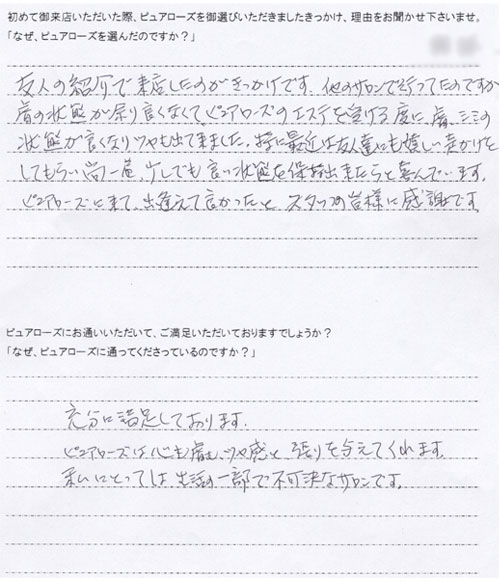 初めて御来店いただいた際、ピュアローズを御選びいただきましたきっかけ、理由をお聞かせ下さいませ。
「なぜ、ピュアローズを選んだのですか?」
友人の紹介で来店したのがきっかけです。他のサロンで行ってたのですが
膚の状態が余り良くなくて、ピュアローズのエステを受ける度に、膚、シミの
状態が良くなりツヤも出て来ました。特に最近は友人達にも嬉しい声かけを
してもらい尚一層、少しでも良い状態を保持出来たらと喜んでいます。
ピュアローズに来て、出逢えて良かったと、スタッフの皆様に感謝です。
ピュアローズにお通いいただいて、ご満足いただいておりますでしょうか?
「なぜ、ピュアローズに通ってくださっているのですか?」
充分に満足しております。
ピュアローズは心も膚も、ツヤ感と張りを与えてくれます。
私にとっては生活の一部で不可決なサロンです。